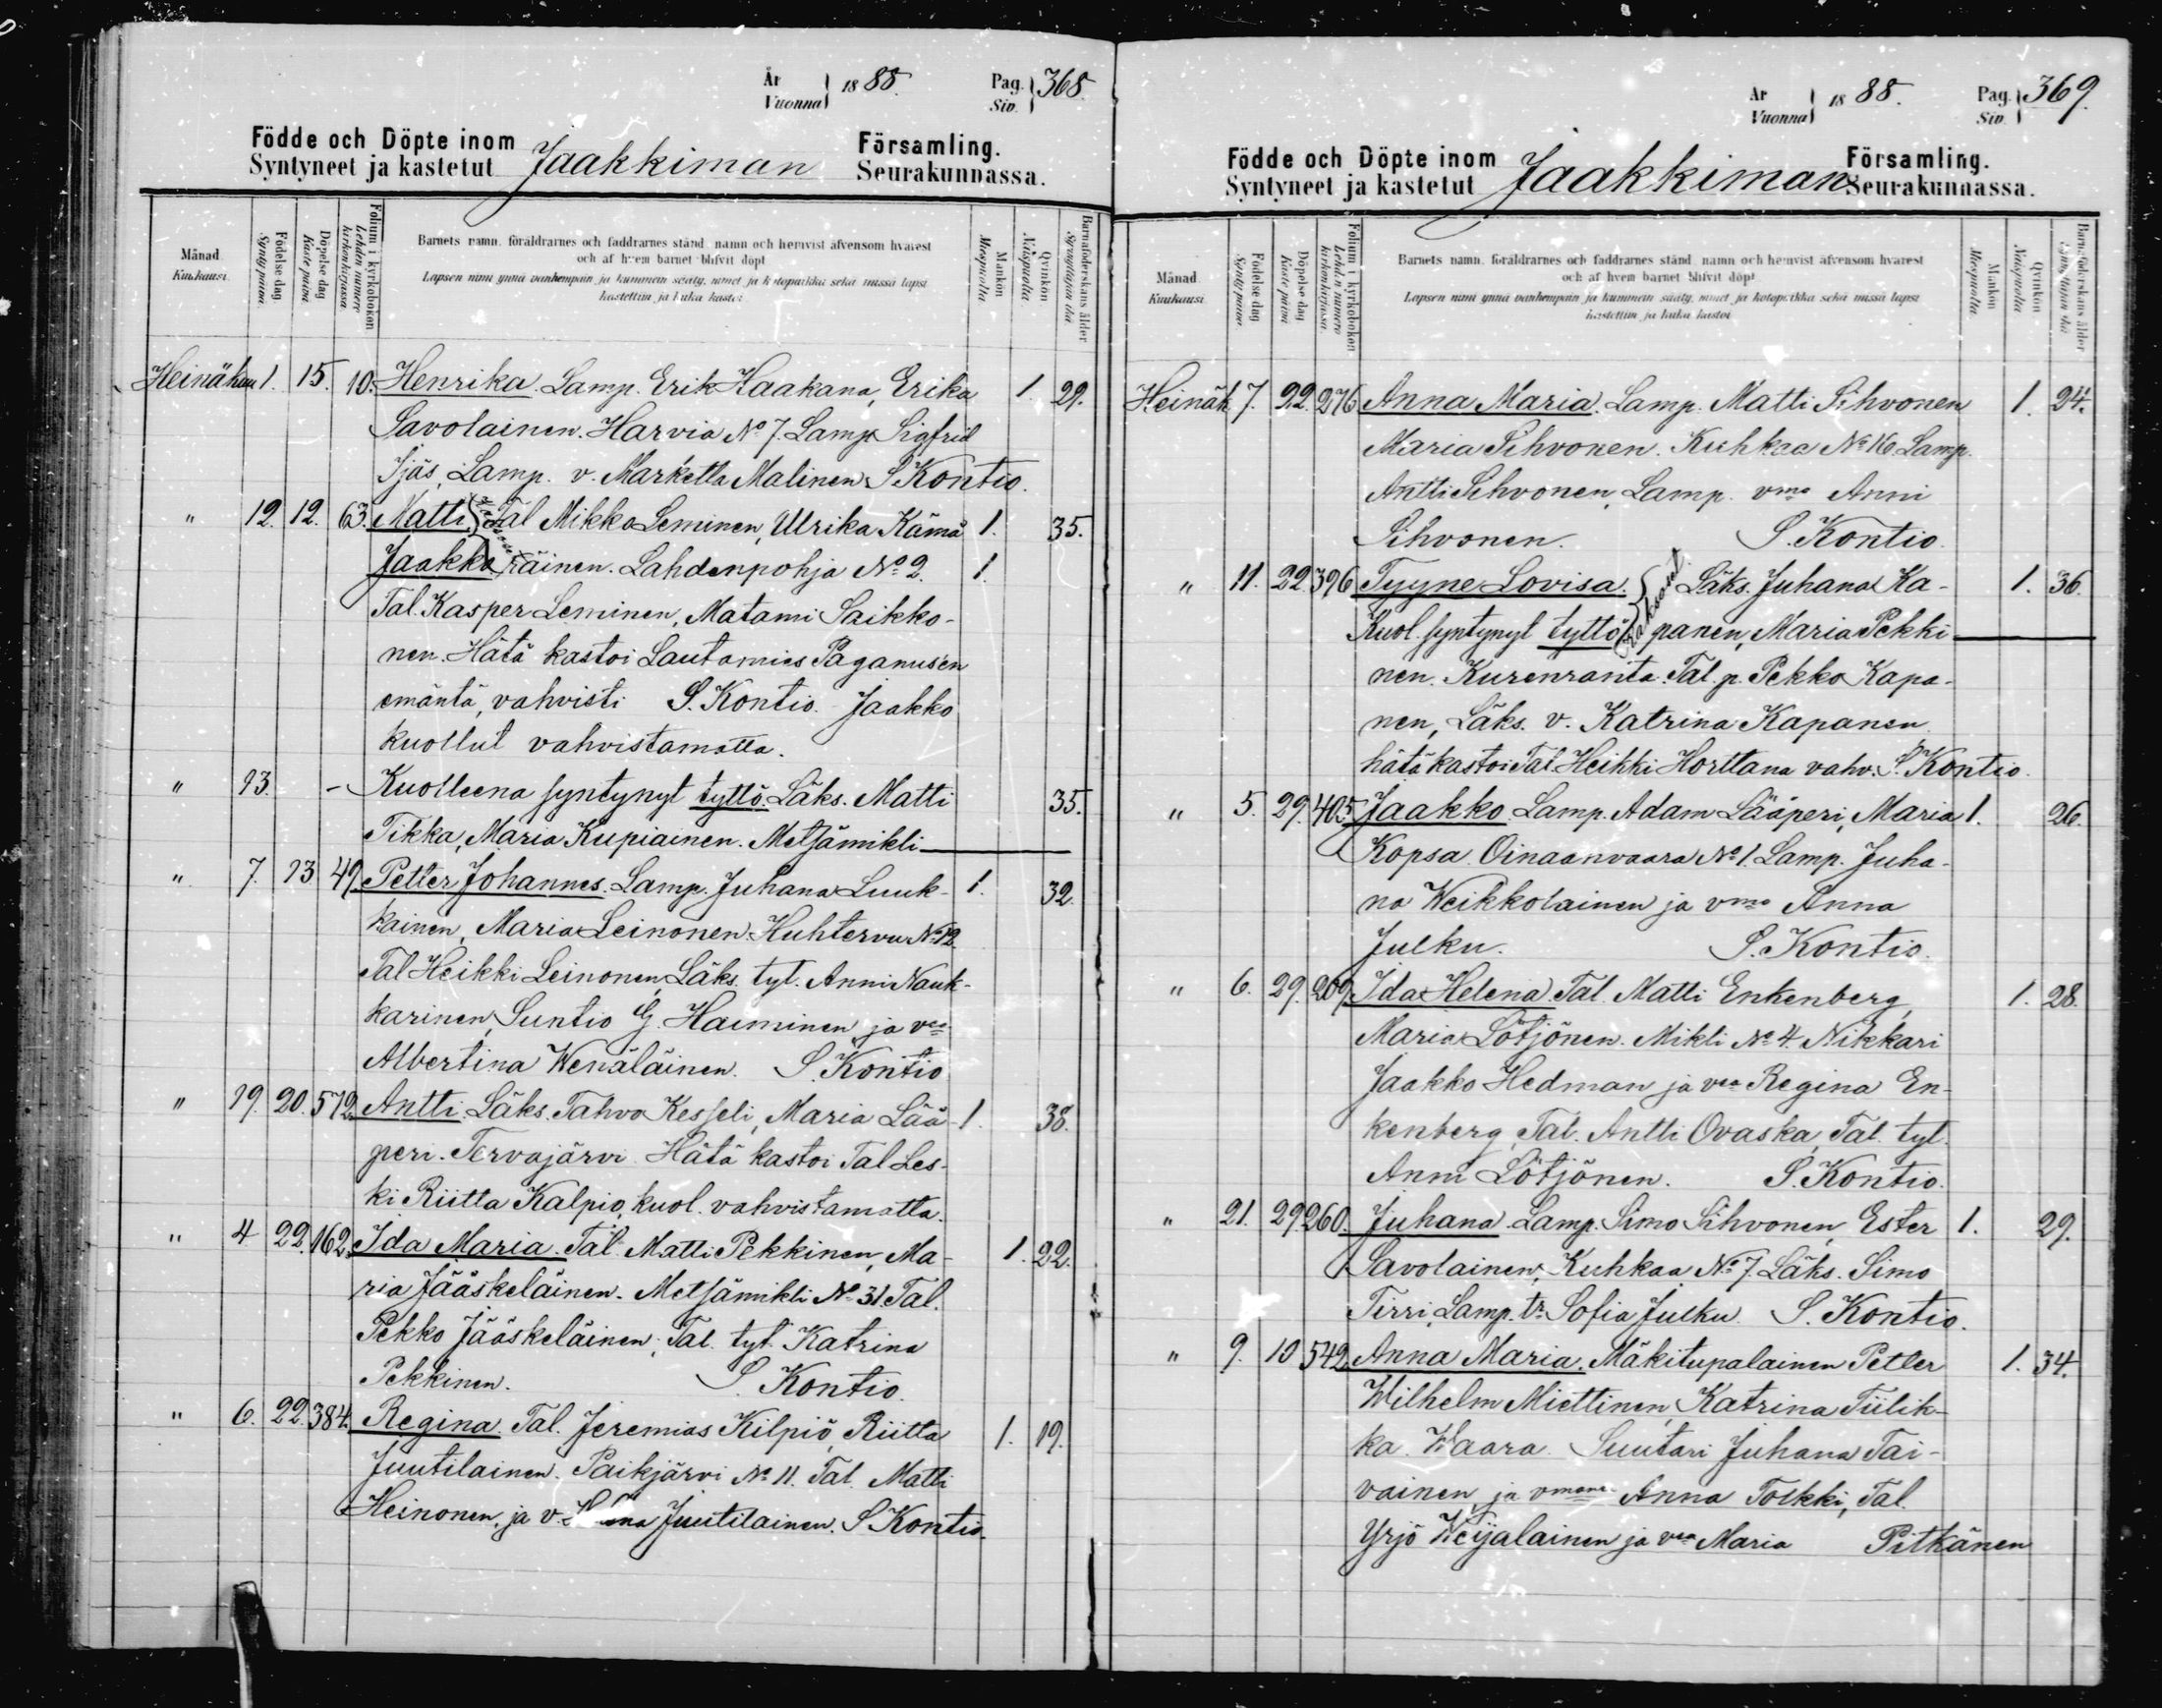 År Vuonna } 1888. Pag. Siv. } 368.
Födde och Döpte inom Jaakkiman Församling.
Syntyneet ja kastetut Seurakunnassa.
Månad Kuukausi.
Födelse dag Synty päivä.
Döpelse dag Kaste päivä.
Folium i kyrkoboken Lehden numero kirkonkirjassa.
Barnets namn, föräldrarnes och faddrarnes stånd, namn och hemvist äfvensom hvarest
och af hvem barnet blifvit döpt
Lapsen nimi ynnä vanhempain ja kummein sääty, nimet ja kotopaikka sekä missä lapsi
kastettiin ja kuka kastoi
Mankön Miespuolta
Qvinkön Naispuolta
Barnaföderskans ålder Synnyttäjän ikä
Heinäkuu 1. 15. 10. Henrika. Lamp. Erik Haakana, Erika 1. 29.
Savolainen. Harvia No 7. Lamp. Sigfrid
Ijäs, Lamp. v. Marketta Malinen S. Kontio.
" 12. 12. 63. Matti Tal Mikko Leminen, Ulrika Kämä 1. 35.
Jaakko räinen. Lahdenpohja No 2. 1.
Tal. Kasper Leminen, Matami Saikko-
nen. Hätä kastoi Lautamies Paganusen
emäntä, vahvisti S. Kontio. Jaakko
kuollut vahvistamatta.
" 13. - Kuolleena syntynyt tyttö. Läks. Matti 35.
Tikka, Maria Kupiainen. Metsämikli
" 7. 13 49 Petter Johannes. Lamp. Juhana Luuk- 1. 32.
kainen, Maria Leinonen. Huhtervu No 12.
Tal Heikki Leinonen, Läks. tyt. Anni Nauk-
karinen, Suntio G. Haiminen ja vmo
Albertina Wenäläinen. S. Kontio
" 19. 20. 512. Antti. Läks. Tahvo Kesseli, Maria Lää- 1. 38.
peri. Tervajärvi. Hätä kastoi Tal Les-
ki Riitta Kalpio, kuol. vahvistamatta.
" 4 22. 162. Ida Maria. Tal. Matti Pekkinen, Ma- 1. 22.
ria Jääskeläinen. Metsämikli No 31. Tal.
Pekko Jääskeläinen, Tal. tyt. Katrina
Pekkinen. S. Kontio.
" 6. 22. 384. Regina. Tal. Jeremias Kilpiö, Riitta 1. 19.
Juutilainen. Paikjärvi No 11. Tal. Matti
Heinonen, ja v. Juutilainen. S. Kontio.
År Vuonna } 1888. Pag. Siv. } 369.
Födde och Döpte inom Jaakkiman Församling.
Syntyneet ja kastetut Seurakunnassa.
Månad Kuukausi.
Födelse dag Synty päivä.
Döpelse dag Kaste päivä
Folium i kyrkoboken Lehden numero kirkonkirjassa.
Barnets namn, föräldrarnes och faddrarnes stånd, namn och hemvist äfvensom hvarest
och af hvem barnet blifvit döpt
Lapsen nimi ynnä vanhempain ja kummein sääty, nimet ja kotopaikka sekä missä lapsi
kastettiin ja kuka kastoi
Mankön Miespuolta
Qvinkön Naispuolta
Barnaföderskans ålder Synnyttäjän ikä
Heinäk. 7. 22. 276 Anna Maria. Lamp. Matti Sihvonen 1. 24.
Maria Sihvonen. Kuhkaa No 16. Lamp.
Antti Sihvonen, Lamp. vmo Anni
Sihvonen. S. Kontio.
" 11. 22. 396 Tyyne Lovisa. kaksoset Läks. Juhana Ka- 1. 36.
Kuol. syntynyt tyttö panen, Maria Pekki
nen. Kurenranta. Tal. p. Pekko Kapa-
nen, Läks. v. Katrina Kapanen
hätä kastoi Tal. Heikki Horttana vahv. S. Kontio.
" 5. 29. 405 Jaakko. Lamp. Adam Lääperi, Maria 1. 26.
Kopsa. Oinaanvaara No 1. Lamp. Juha-
na Weikkolainen ja vmo Anna
Julku. S. Kontio.
" 6. 29. 209. Ida Helena. Tal. Matti Enkenberg, 1. 28.
Maria Lötjönen. Mikli No 4. Nikkari
Jaakko Hedman ja vmo Regina En-
kenberg, Tal. Antti Ovaska, Tal. tyt.
Anni Lötjönen. S. Kontio.
" 21. 29. 260. Juhana. Lamp. Simo Sihvonen, Ester 1. 29.
Savolainen, Kuhkaa No 7. Läks. Simo
Tirri, Lamp. tr. Sofia Julku. S. Kontio.
" 9. 10 542. Anna Maria. Mäkitupalainen Petter 1. 34.
Wilhelm Miettinen, Katrina Tiilik-
ka. Waara. Suutari Juhana Tai-
vainen, ja vmonsa Anna Tolkki, Tal.
Yrjö Weijalainen ja vmo Maria Pitkänen